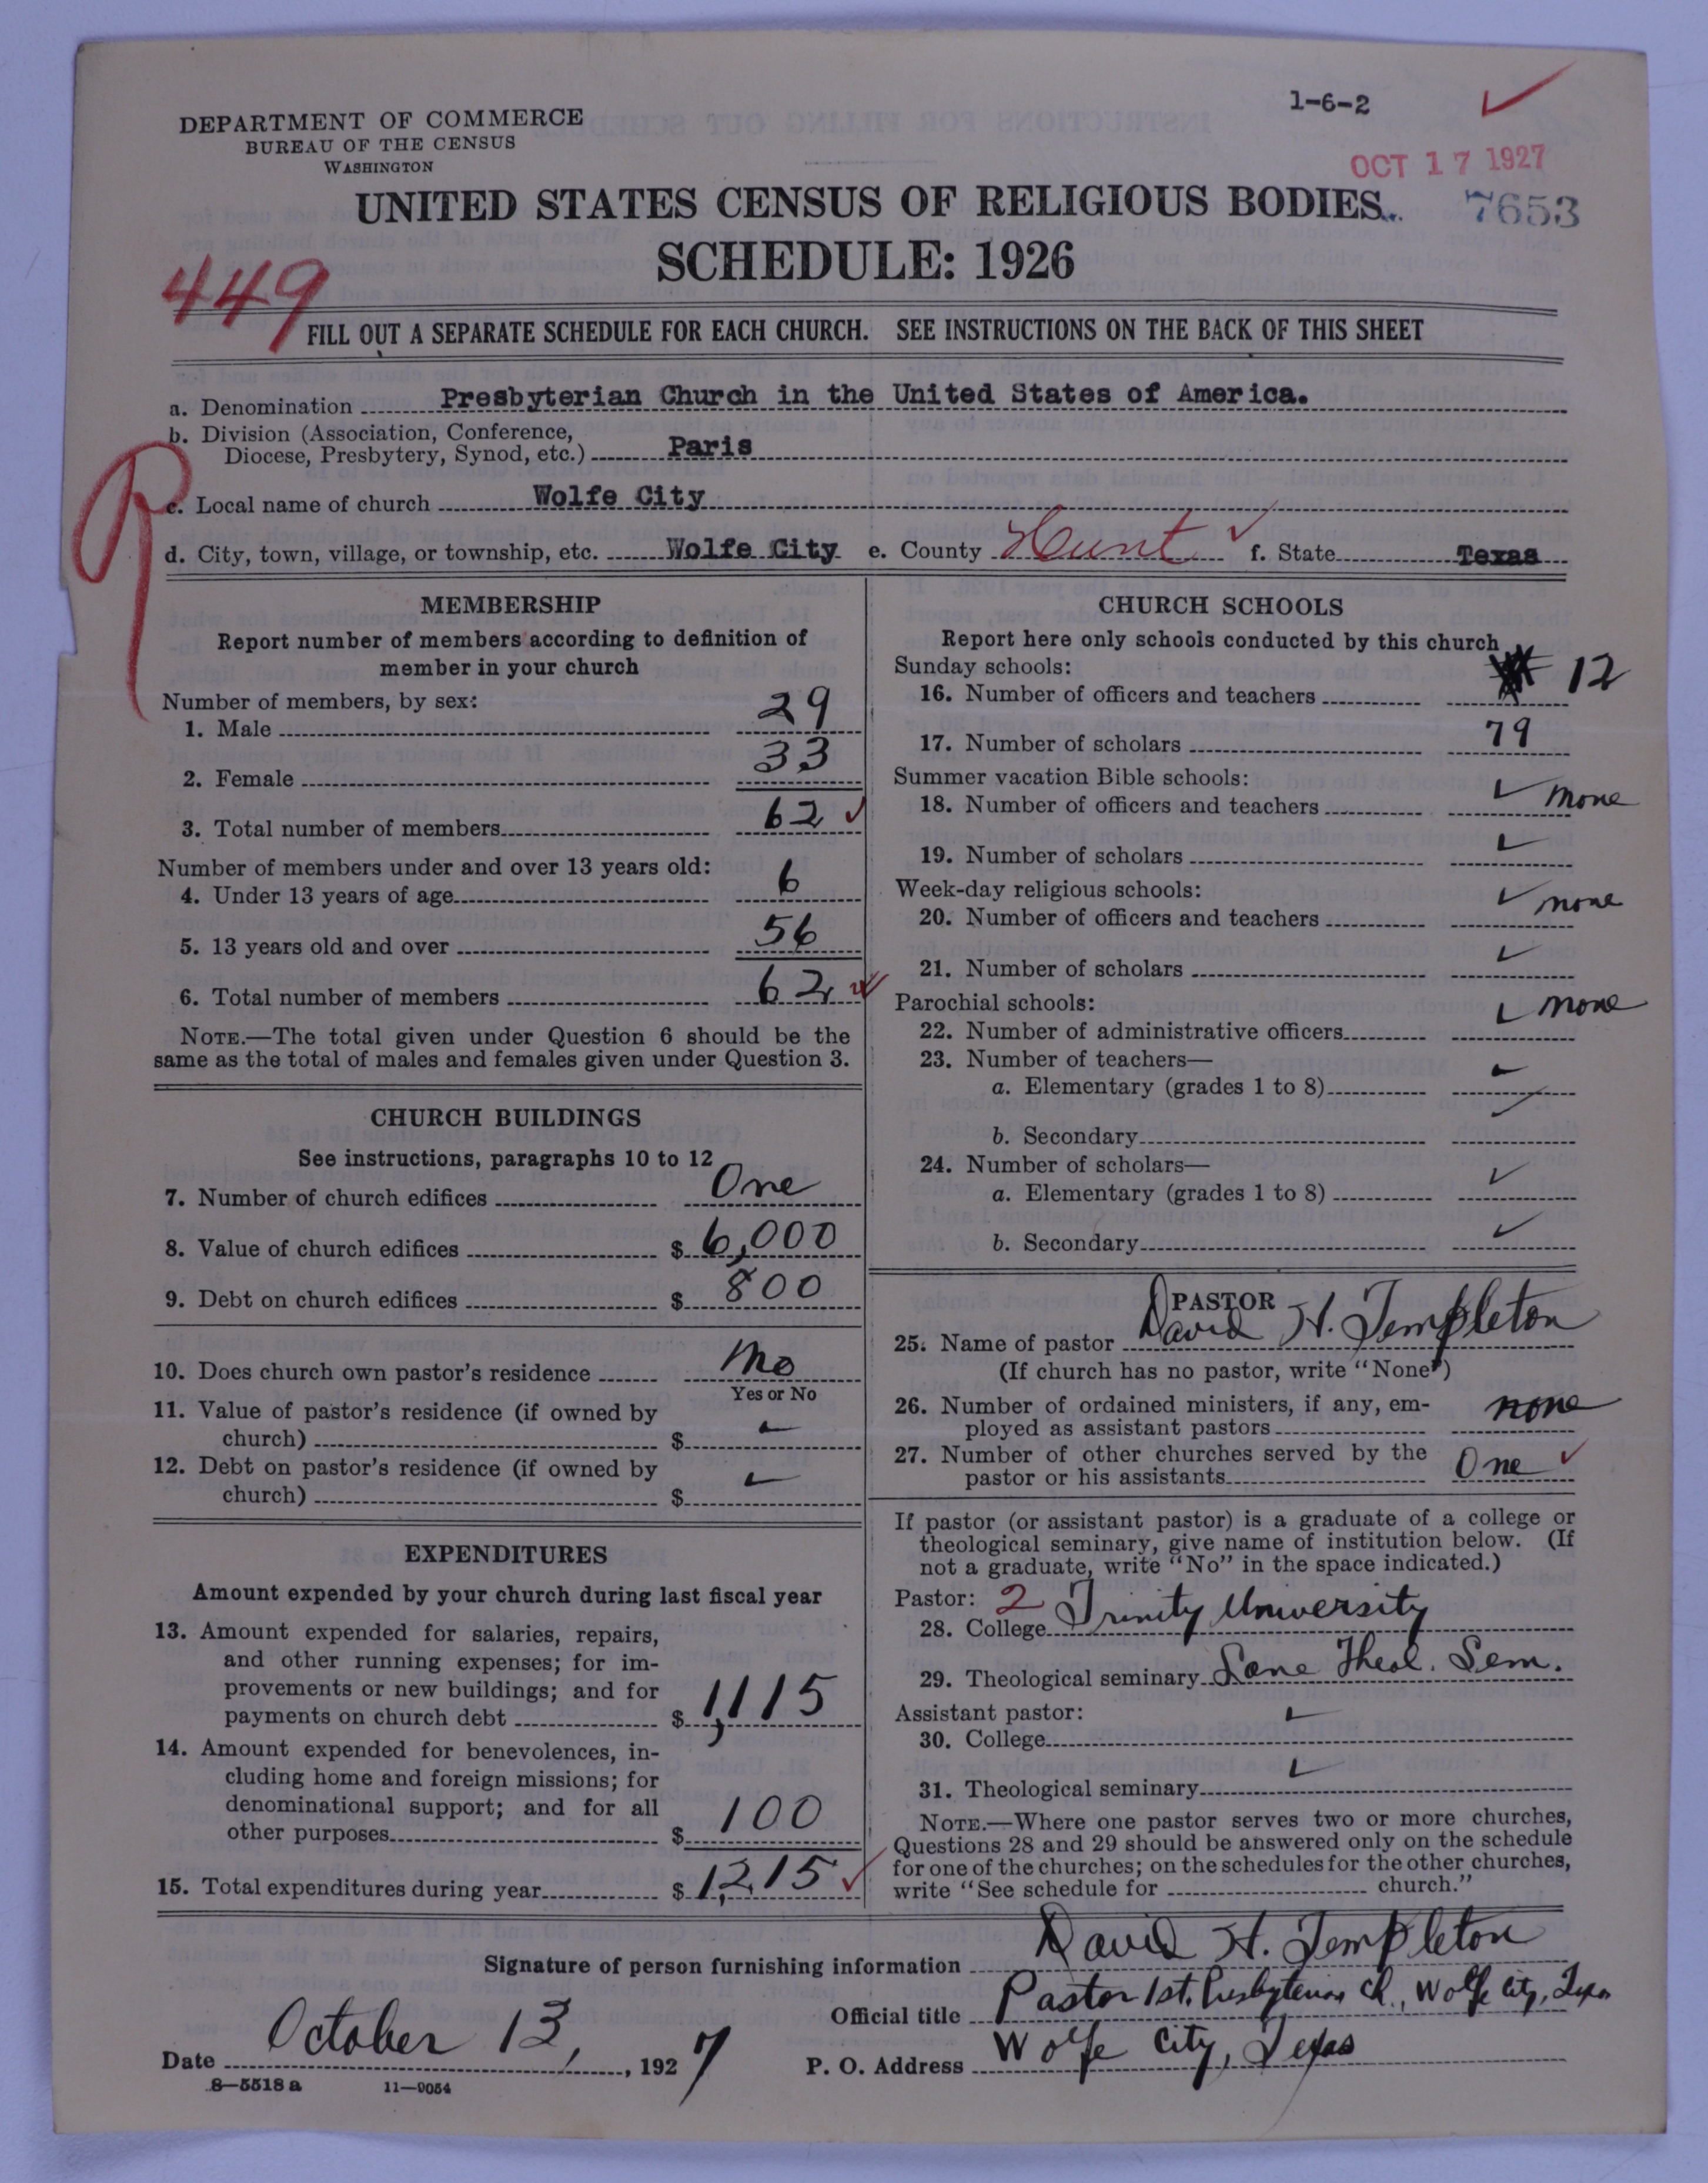 1-6-2
DEPARTMENT OF COMMERCE
BUREAU OF THE CENSUS
WASHINGTON
OCT 17 1927
UNITED STATES CENSUS OF RELIGIOUS BODIES
7653
SCHEDULE: 1926
449
FILL OUT A SEPARATE SCHEDULE FOR EACH CHURCH. SEE INSTRUCTIONS ON THE BACK OF THIS SHEET
a. Denomination Presbyterian Church in the United States of America.
b. Division (Association, Conference,
Diocese, Presbytery, Synod, etc.) Paris
R
c. Local name of church Wolfe City
d. City, town, village, or township, etc. Wolfe City e. County Hunt ✓ f. State Texas
MEMBERSHIP
Report number of members according to definition of
member in your church
Number of members, by sex:
1. Male 29
2. Female 33
3. Total number of members 62 ✓
Number of members under and over 13 years old:
4. Under 13 years of age 6
5. 13 years old and over 56
6. Total number of members 62 ✓
NOTE.—The total given under Question 6 should be the
same as the total of males and females given under Question 3.
CHURCH BUILDINGS
See instructions, paragraphs 10 to 12
7. Number of church edifices One
8. Value of church edifices $ 6,000
9. Debt on church edifices $ 800
10. Does church own pastor's residence No
Yes or No
11. Value of pastor's residence (if owned by
church) $ ✓
12. Debt on pastor's residence (if owned by
church) $ ✓
EXPENDITURES
Amount expended by your church during last fiscal year
13. Amount expended for salaries, repairs,
and other running expenses; for im-
provements or new buildings; and for
payments on church debt $ 1,115
14. Amount expended for benevolences, in-
cluding home and foreign missions; for
denominational support; and for all
other purposes $ 100
15. Total expenditures during year $ 1,215 ✓
CHURCH SCHOOLS
Report here only schools conducted by this church
Sunday schools:
16. Number of officers and teachers 12
17. Number of scholars 79
Summer vacation Bible schools:
18. Number of officers and teachers ✓ none
19. Number of scholars ✓
Week-day religious schools:
20. Number of officers and teachers ✓ none
21. Number of scholars ✓
Parochial schools:
22. Number of administrative officers ✓ none
23. Number of teachers—
a. Elementary (grades 1 to 8) ✓
b. Secondary ✓
24. Number of scholars—
a. Elementary (grades 1 to 8) ✓
b. Secondary ✓
PASTOR
25. Name of pastor David H. Templeton
(If church has no pastor, write "None")
26. Number of ordained ministers, if any, em-
ployed as assistant pastors none
27. Number of other churches served by the
pastor or his assistants One ✓
If pastor (or assistant pastor) is a graduate of a college or
theological seminary, give name of institution below. (If
not a graduate, write "No" in the space indicated.)
Pastor: 2
28. College Trinity University
29. Theological seminary Lane Theol. Sem.
Assistant pastor:
30. College ✓
31. Theological seminary ✓
NOTE.—Where one pastor serves two or more churches,
Questions 28 and 29 should be answered only on the schedule
for one of the churches; on the schedules for the other churches,
write "See schedule for church."
Signature of person furnishing information David H. Templeton
Official title Pastor 1st. Presbyterian Ch., Wolfe City, Texas
Date October 13, 1927
P. O. Address Wolfe City, Texas
8—5518 a 11—9054